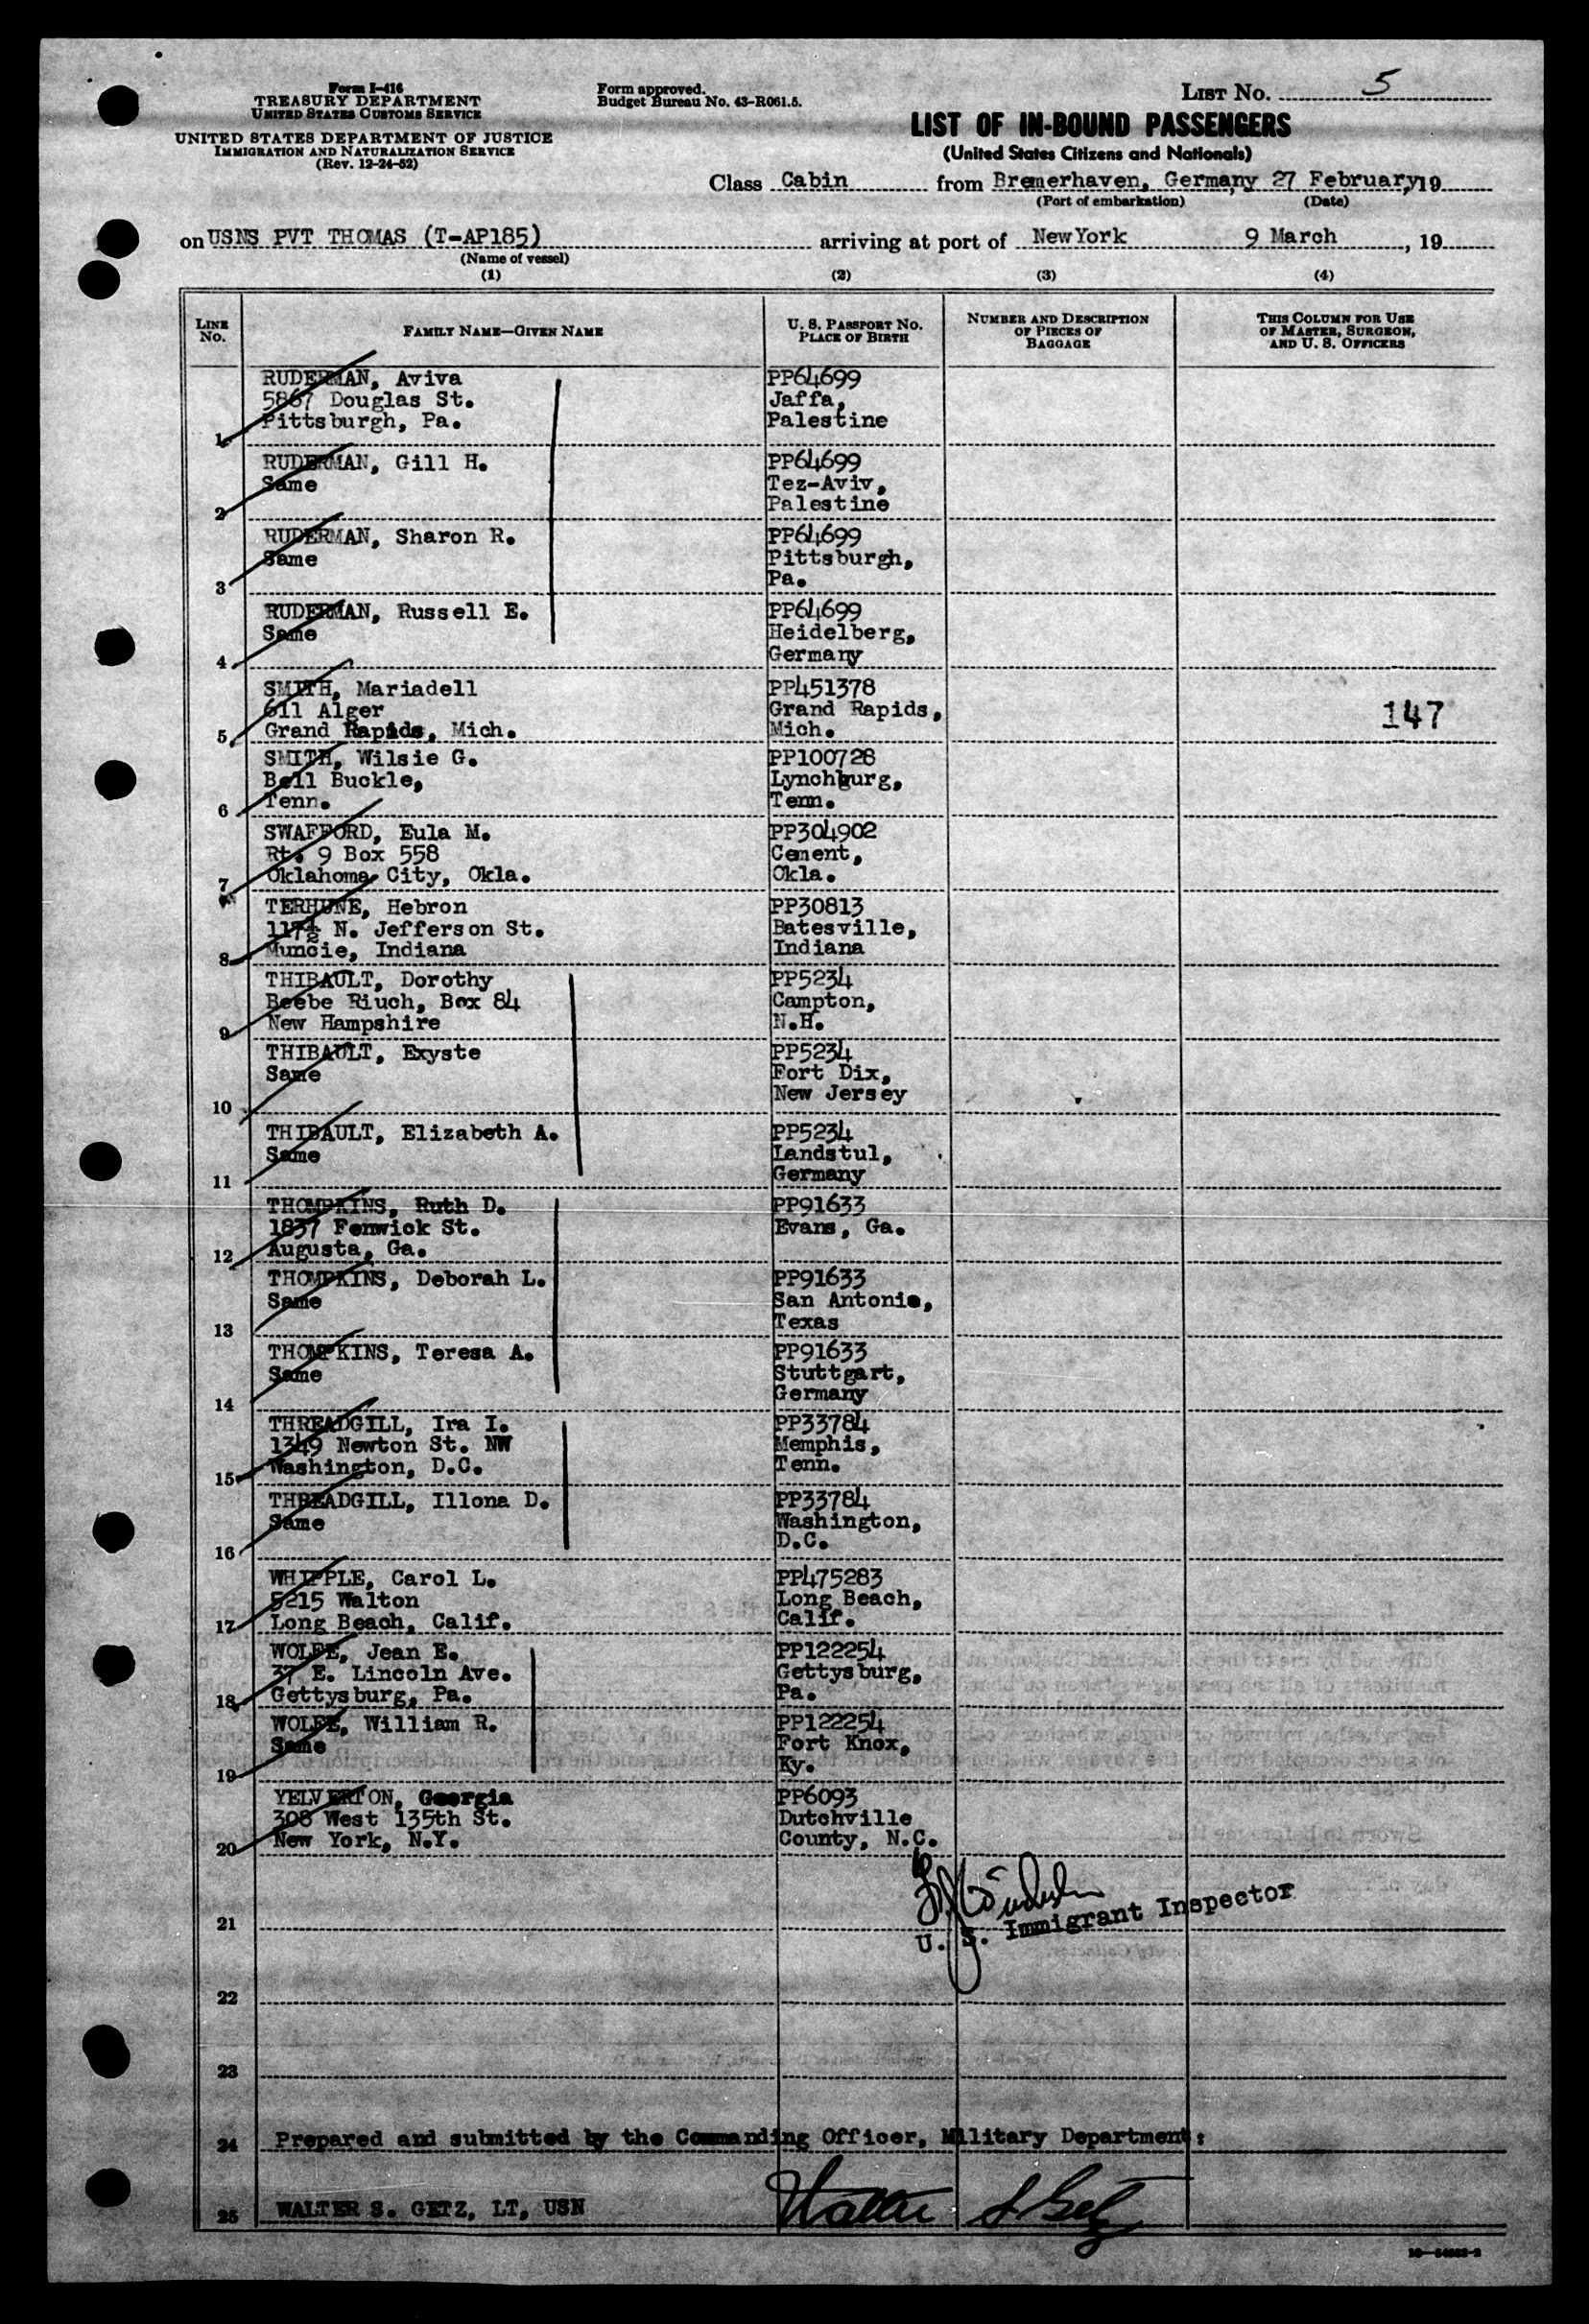 Form I-416
TREASURY DEPARTMENT
UNITED STATES CUSTOMS SERVICE
UNITED STATES DEPARTMENT OF JUSTICE
IMMIGRATION AND NATURALIZATION SERVICE
(Rev. 12-24-52)
Form approved.
Budget Bureau No. 43-R061.5.
LIST No. 5
LIST OF IN-BOUND PASSENGERS
(United States Citizens and Nationals)
Class Cabin from Bremerhaven, Germany 27 February, 19
(Port of embarkation) (Date)
on USNS PVT THOMAS (T-AP185) arriving at port of New York 9 March, 19
(Name of vessel)
(1) (2) (3) (4)
LINE No.
FAMILY NAME—GIVEN NAME
U. S. PASSPORT NO.
PLACE OF BIRTH
NUMBER AND DESCRIPTION
OF PIECES OF
BAGGAGE
THIS COLUMN FOR USE
OF MASTER, SURGEON,
AND U. S. OFFICERS
RUDERMAN, Aviva PP64699
5867 Douglas St. Jaffa,
1 Pittsburgh, Pa. Palestine
RUDERMAN, Gill H. PP64699
Same Tez-Aviv,
2 Palestine
RUDERMAN, Sharon R. PP64699
Same Pittsburgh,
3 Pa.
RUDERMAN, Russell E. PP64699
Same Heidelberg,
4 Germany
SMITH, Mariadell PP451378
611 Alger Grand Rapids, 147
5 Grand Rapids, Mich. Mich.
SMITH, Wilsie G. PP100728
Bell Buckle, Lynchburg,
6 Tenn. Tenn.
SWAFFORD, Eula M. PP304902
Rt. 9 Box 558 Cement,
7 Oklahoma City, Okla. Okla.
TERHUNE, Hebron PP30813
117½ N. Jefferson St. Batesville,
8 Muncie, Indiana Indiana
THIBAULT, Dorothy PP5234
Beebe Riuch, Box 84 Campton,
9 New Hampshire N.H.
THIBAULT, Exyste PP5234
Same Fort Dix,
10 New Jersey
THIBAULT, Elizabeth A. PP5234
Same Landstul,
11 Germany
THOMPKINS, Ruth D. PP91633
1837 Fenwick St. Evans, Ga.
12 Augusta, Ga.
THOMPKINS, Deborah L. PP91633
Same San Antonio,
13 Texas
THOMPKINS, Teresa A. PP91633
Same Stuttgart,
14 Germany
THREADGILL, Ira I. PP33784
1349 Newton St. NW Memphis,
15 Washington, D.C. Tenn.
THREADGILL, Illona D. PP33784
Same Washington,
16 D.C.
WHIPPLE, Carol L. PP475283
5215 Walton Long Beach,
17 Long Beach, Calif. Calif.
WOLFE, Jean E. PP122254
37 E. Lincoln Ave. Gettysburg,
18 Gettysburg, Pa. Pa.
WOLFE, William R. PP122254
Same Fort Knox,
19 Ky.
YELVERTON, Georgia PP6093
308 West 135th St. Dutchville
20 New York, N.Y. County, N.C.
21 U. S. Immigrant Inspector
22
23
24 Prepared and submitted by the Commanding Officer, Military Department:
25 WALTER S. GETZ, LT, USN Walter S Getz